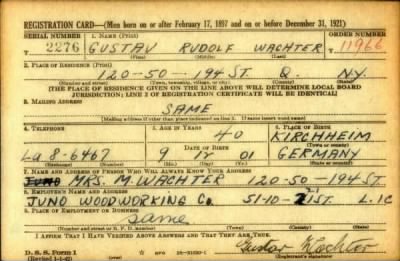 REGISTRATION CARD—(Men born on or after February 17, 1897 and on or before December 31, 1921)
SERIAL NUMBER 1. NAME (Print) ORDER NUMBER
T 2276 GUSTAV RUDOLF WACHTER 11966
(First) (Middle) (Last)
2. PLACE OF RESIDENCE (Print)
120-50-194 ST. Q. N.Y.
(Number and street) (Town, township, village, or city) (County) (State)
[THE PLACE OF RESIDENCE GIVEN ON THE LINE ABOVE WILL DETERMINE LOCAL BOARD
JURISDICTION; LINE 2 OF REGISTRATION CERTIFICATE WILL BE IDENTICAL]
3. MAILING ADDRESS
SAME
[Mailing address if other than place indicated on line 2. If same insert word same]
4. TELEPHONE 5. AGE IN YEARS 6. PLACE OF BIRTH
40 KIRCHHEIM
DATE OF BIRTH (Town or county)
La 8-6467 9 17 01 GERMANY
(Exchange) (Number) (Mo.) (Day) (Yr.) (State or country)
7. NAME AND ADDRESS OF PERSON WHO WILL ALWAYS KNOW YOUR ADDRESS
JUNO MRS M. WACHTER 120-50-194 ST.
8. EMPLOYER'S NAME AND ADDRESS
JUNO WOODWORKING Co. 51-10-21ST. L.I.C
9. PLACE OF EMPLOYMENT OR BUSINESS
Same
(Number and street or R. F. D. number) (Town) (County) (State)
I AFFIRM THAT I HAVE VERIFIED ABOVE ANSWERS AND THAT THEY ARE TRUE.
D. S. S. Form 1
(Revised 1-1-42) (over)
Gustav Wachter
(Registrant's signature)